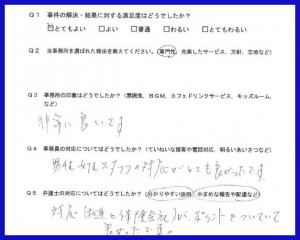 Q1 事件の解決・結果に対する満足度はどうでしたか？
☑とてもよい □よい □普通 □わるい □とてもわるい
Q2 当事務所を選ばれた理由を教えてください。（専門性、充実したサービス、方針、立地など）
Q3 事務所の印象はどうでしたか？（雰囲気、BGM、カフェドリンクサービス、キッズルーム、
など）
非常に良いです
Q4 事務員の対応についてはどうでしたか？（ていねいな接客や電話対応、明るいあいさつなど）
男性女性スタッフの対応がとても良かったです。
Q5 弁護士の対応についてはどうでしたか？（分かりやすい説明、小まめな報告や配慮など）
対応（相手と保険会社）が、ポイントをついていて
良かったです。